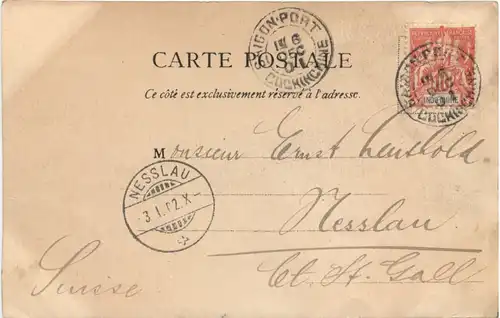 SAIGON-PORT
6
DEC
COCHINCHINE
CARTE POSTALE
Ce côté est exclusivement réservé à l'adresse.
INDO-CHINE
COCHINCHINE
Monsieur Ernst Leuthold
NESSLAU
3.I.02.X-
Nesslau
Ct. St. Gall
Suisse